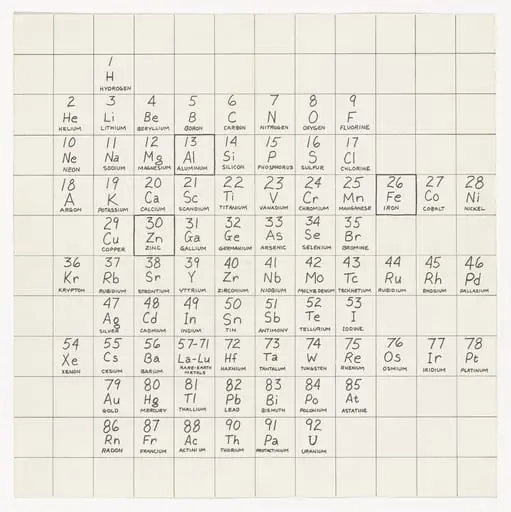 1
H
HYDROGEN
2 3 4 5 6 7 8 9
He Li Be B C N O F
HELIUM LITHIUM BERYLLIUM BORON CARBON NITROGEN OXYGEN FLUORINE
10 11 12 13 14 15 16 17
Ne Na Mg Al Si P S Cl
NEON SODIUM MAGNESIUM ALUMINUM SILICON PHOSPHORUS SULFUR CHLORINE
18 19 20 21 22 23 24 25 26 27 28
A K Ca Sc Ti V Cr Mn Fe Co Ni
ARGON POTASSIUM CALCIUM SCANDIUM TITANIUM VANADIUM CHROMIUM MANGANESE IRON COBALT NICKEL
29 30 31 32 33 34 35
Cu Zn Ga Ge As Se Br
COPPER ZINC GALLIUM GERMANIUM ARSENIC SELENIUM BROMINE
36 37 38 39 40 41 42 43 44 45 46
Kr Rb Sr Y Zr Nb Mo Tc Ru Rh Pd
KRYPTON RUBIDIUM STRONTIUM YTTRIUM ZIRCONIUM NIOBIUM MOLYBDENUM TECHNETIUM RUBIDIUM RHODIUM PALLADIUM
47 48 49 50 51 52 53
Ag Cd In Sn Sb Te I
SILVER CADMIUM INDIUM TIN ANTIMONY TELLURIUM IODINE
54 55 56 57-71 72 73 74 75 76 77 78
Xe Cs Ba La-Lu Hf Ta W Re Os Ir Pt
XENON CESIUM BARIUM RARE-EARTH METALS TANTALUM TUNGSTEN RHENIUM OSMIUM IRIDIUM PLATINUM
79 80 81 82 83 84 85
Au Hg Tl Pb Bi Po At
GOLD MERCURY THALLIUM LEAD BISMUTH POLONIUM ASTATINE
86 87 88 90 91 92
Rn Fr Ac Th Pa U
RADON FRANCIUM ACTINIUM THORIUM PROTACTINIUM URANIUM